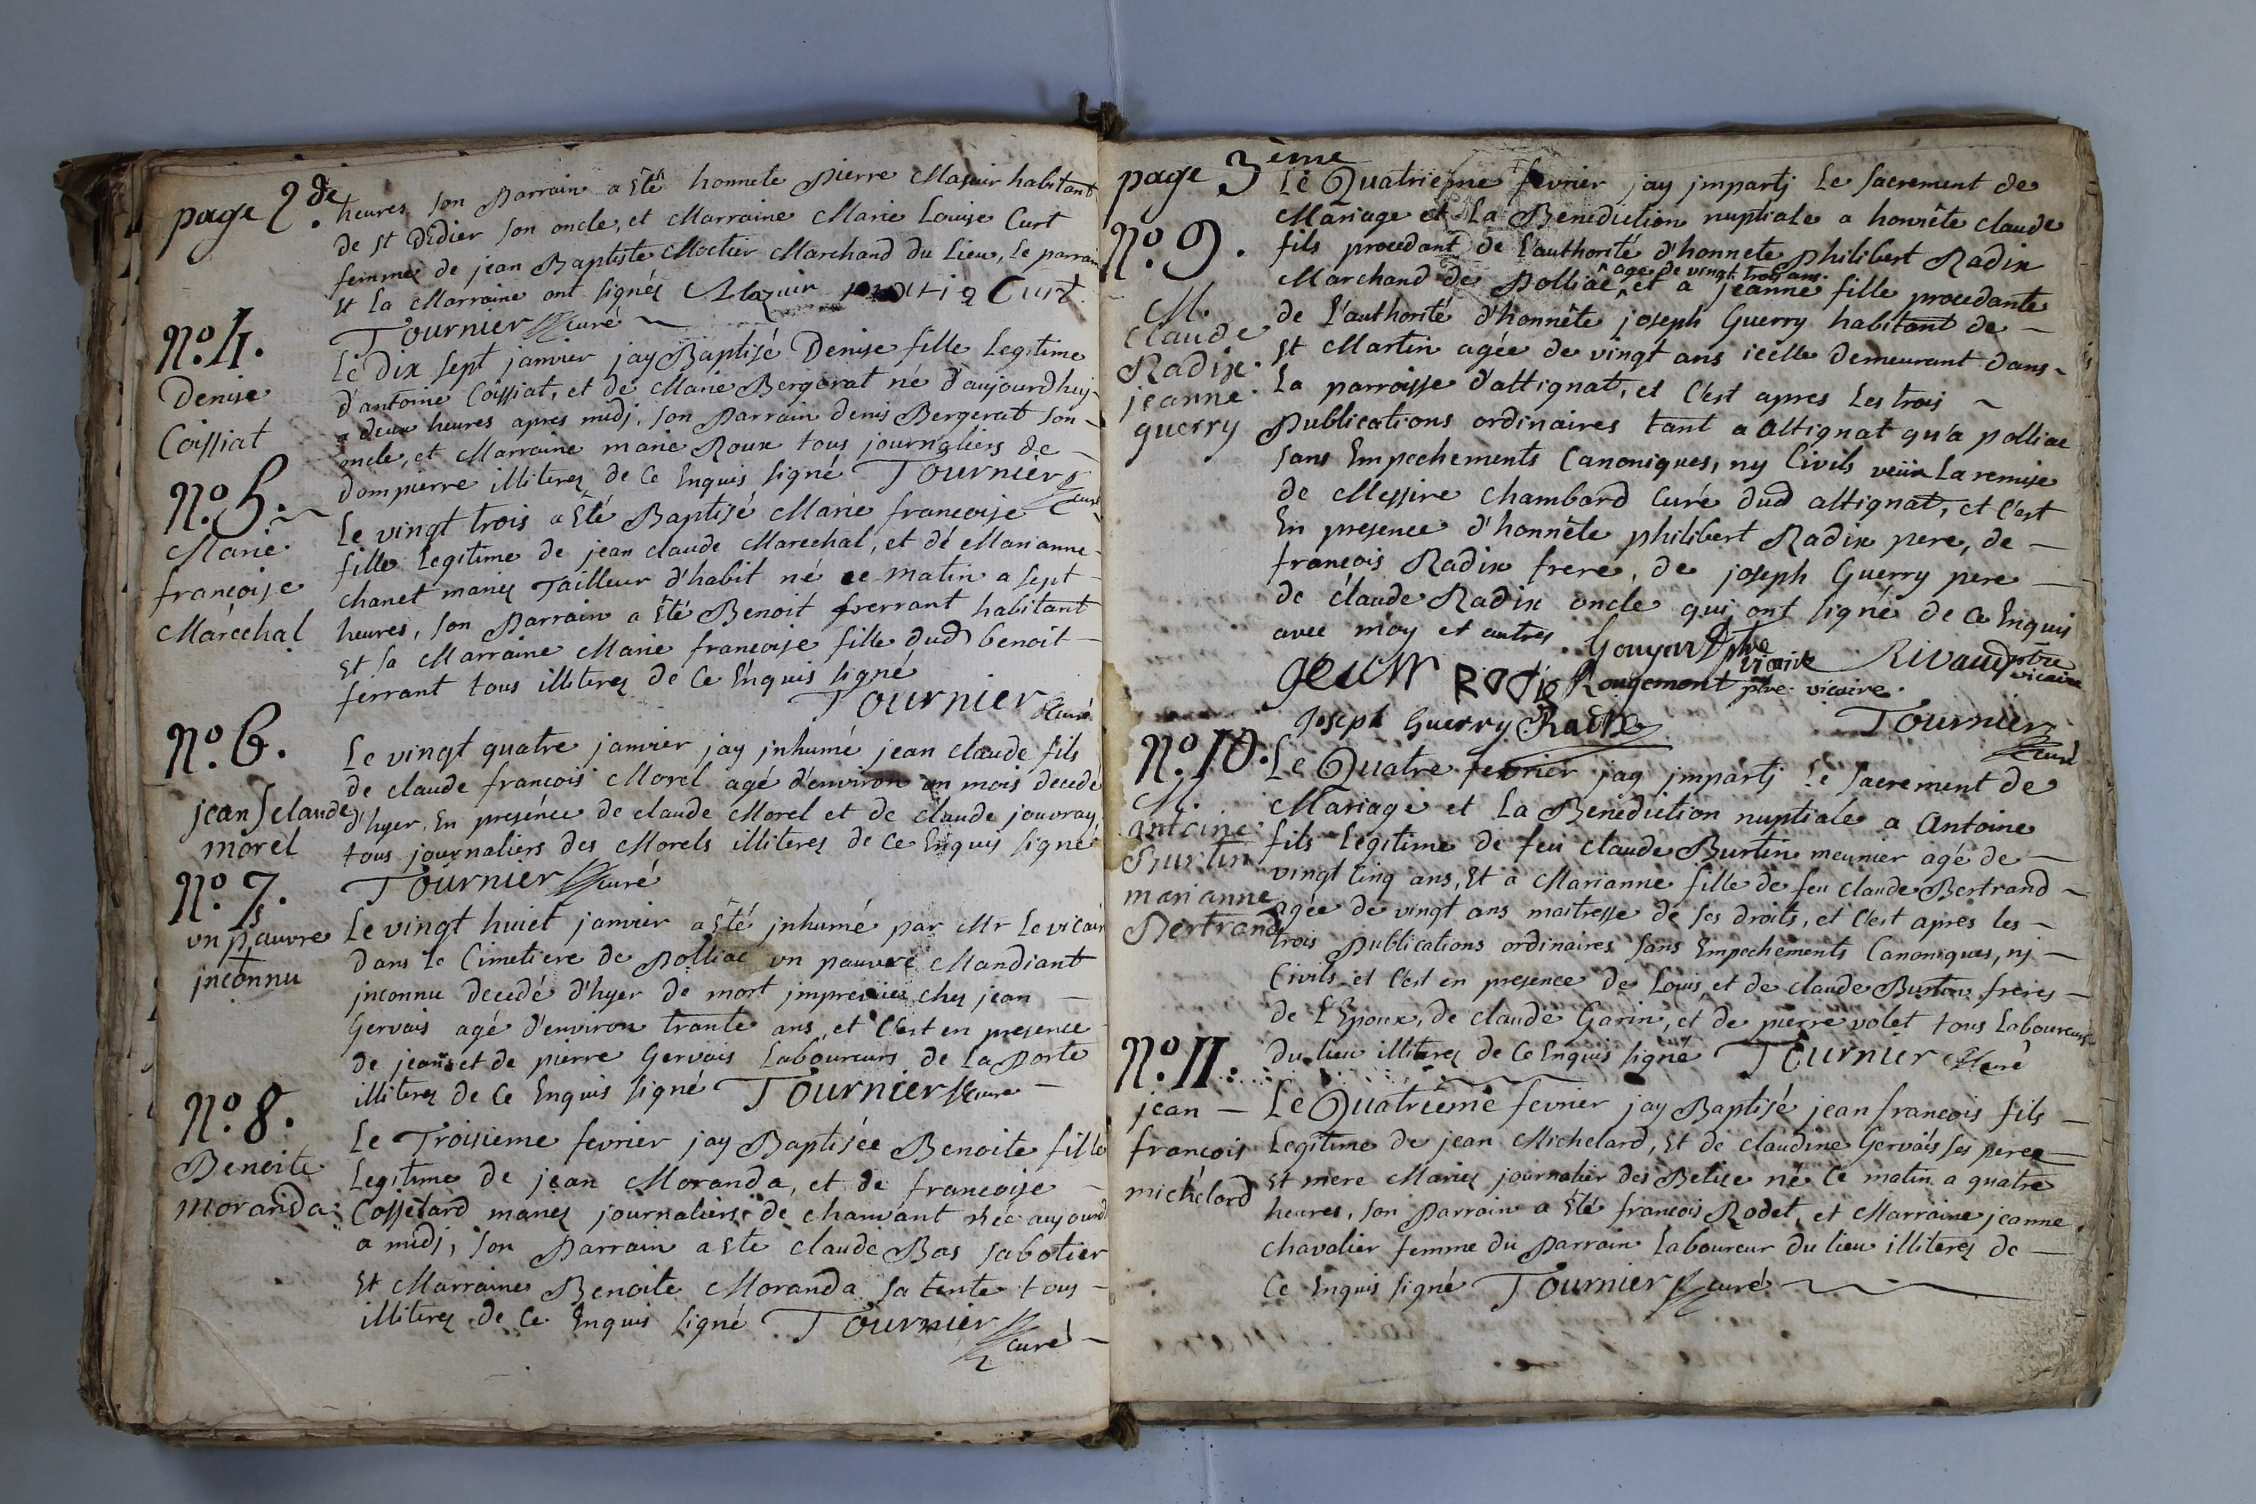 page 2de.
heures, son Parrain a Eté honnete Pierre Mazuir habitant
de St Didier son oncle, et Marraine Marie Louise Curt
femme de jean Baptiste Moctier Marchand du Lieu, Le parrain
Et La Marraine ont signés Mazuir maria Curt
Tournier curé
No. 4.
Denise
Coissiat
Le Dix sept janvier jay Baptisé Denise fille Legitime
d'antoine Coissiat, et de Marie Bergerat né d'aujourdhuj
a deux heures apres midj, son Parrain denis Bergerat son
oncle, et Marraine marie Roux tous journaliers de
dompierre illiterez de Ce Enquis signé Tournier curé
No. 5.
Marie
françoise
Maréchal
Le vingt trois a Eté Baptisé Marie francoise
fille Legitime de jean claude Marechal, et dé Marianne
chanet mariez Tailleur d'habit né ce matin a sept
heures, son Parrain a Eté Benoit ferrant habitant
Et sa Marraine Marie francoise fille dud benoit
ferrant tous illiterez de Ce Enquis signé
Tournier curé
No. 6.
jean claude
morel
Le vingt quatre janvier jay jnhumé jean claude fils
de claude francois Morel agé d'environ un mois decedé
d'hyer, En presénce de claude Morel et de claude jouvray
tous journaliers des Morels illiterez de Ce Enquis signé
Tournier curé
No. 7.
vn pauvre
jnconnu
Le vingt huict janvier a Eté jnhumé par Mr Le vicair
dans Le Cimetiere de Polliac vn pauvre Mandiant
jnconnu decedé d'hyer de mort jmpreveüe chez jean
Gervais agé d'environ trante ans, et C'est en presence
de jean et de pierre Gervais Laboureurs de La Porte
illiterez de Ce Enquis signé Tournier curé
No. 8.
Benoite
moranda
Le Troisieme fevrier jay Baptisée Benoite fille
Legitime de jean Moranda, et de francoise
Cossetard mariez journaliers de chamant née aujourd
a midj, son Parrain a Ete claude Bas sabotier
Et Marraine Benoite Moranda sa tente tous
illiterez de Ce Enquis signé Tournier
curé
page 3ème
No. 9.
M.
Claude
Radix
jeanne
guerry
Le Quatrieme fevrier jay jmpartj Le Sacrement de
Mariage et La Benediction nuptiale a honnête claude
fils procedant de L'authorité d'honnete Philibert Radix
Marchand de Polliac agé de vingt trois ans et a jeanne fille procedante
de L'authorité d'honnête joseph Guerry habitant de
St Martin agée de vingt ans icelle demeurant dans
La parroisse d'attignat, et C'est apres Les trois
Publications ordinaires tant a attignat qu'a polliac
sans Empechements Canoniques, ny Civils veüe La remise
de Messire chambard Curé dud attignat, et C'est
En presence d'honnête philibert Radix pere, de
françois Radix frere, de joseph Guerry pere
de claude Radix oncle qui ont signé de Ce Enquis
avec moy et autres. Gouyon Ptre
vicaire Rivaud ptre
vicaire
Radix Rougemont ptre vicaire.
joseph Guerry Radix Tournier
curé
No. 10.
M.
antoine
Burtin
marianne
Bertrand
Le Quatre fevrier jay jmpartj Le Sacrement de
Mariage et La Benediction nuptiale a Antoine
fils Legitime de feu claude Burtin meunier agé de
vingt Cinq ans, Et a Marianne fille de feu claude Bertrand
agée de vingt ans maitresse de ses droits, et C'est apres les
trois Publications ordinaires sans Empechements Canoniques, nj
Civils et C'est en presence de Louis et de claude Burtin freres
de L'Epoux, de claude Garin, et de pierre volet tous Laboureurs
du lieu illiterez de Ce Enquis signé Tournier curé
No. 11.
jean
françois
michélard
Le Quatrieme fevrier jay Baptisé jean francois fils
Legitime de jean Michelard, Et de claudine Gervais ses peres
Et mere Mariez journalier des Belise né Ce matin a quatre
heures, son Parrain a Eté francois Rodet, et Marraine jeanne
chavalier femme du Parrain Laboureur du lieu illiterez de
Ce Enquis signé Tournier curé